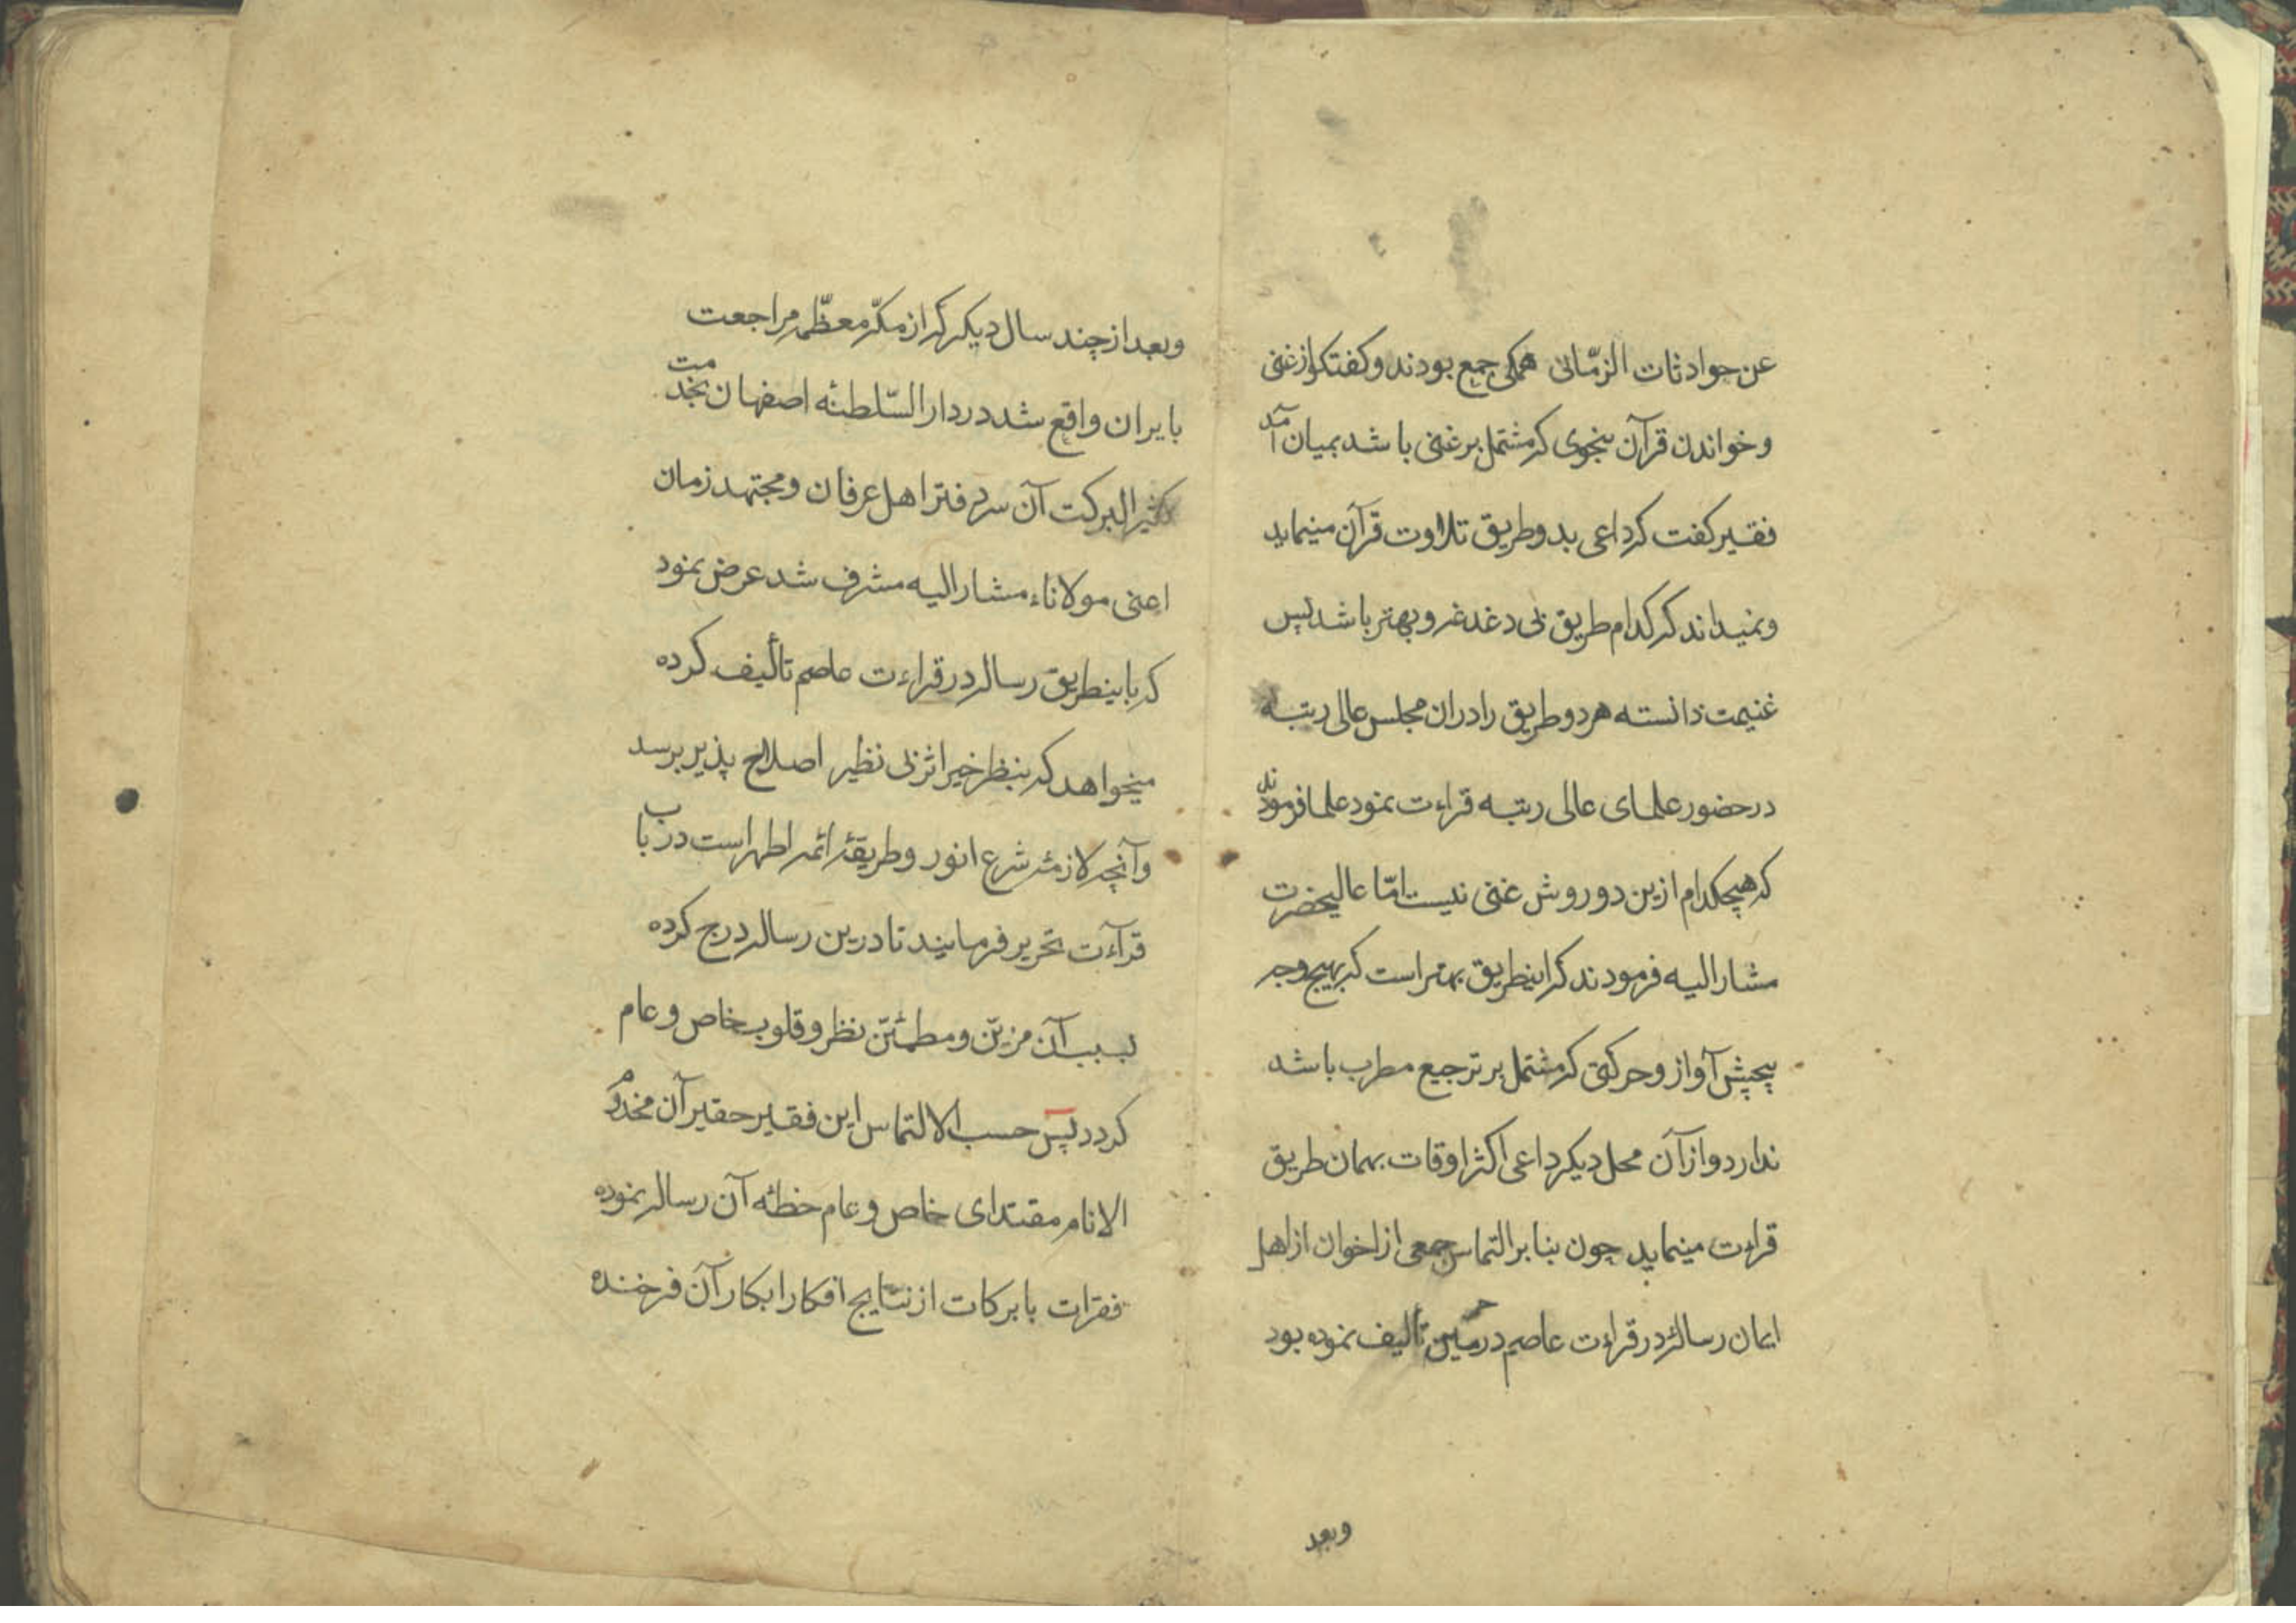 عن حوادثات الزّمانی همکی جمع بودند وکفتکو از غنی
وخواندن قرآن بنحوی که مشتمل بر غنی باشد بمیان آمد
فقیر کفت که داعی بدو طریق تلاوت قرآن مینماید
ونمیداند که کدام طریق بی دغدغه و بهتر باشد پس
غنیمت دانسته هر دو طریق را دران مجلس عالی رتبه
در حضور علمای عالی رتبه قراءت نمود علما فرمودند
که هیچکدام ازین دو روش غنی نیست امّا عالیحضرت
مشار الیه فرمودند که اینطریق بهتر است که بهیچ وجه
پیچش آواز وحرکتی که مشتمل بر ترجیع مطرب باشد
ندارد واز آن محل دیکر داعی اکثر اوقات بهمان طریق
قراءت مینماید چون بنا بر التماس جمعی از اخوان از اهل
ایمان رساله در قراءت عاصم در تألیف نموده بود
وبعد
وبعد از چند سال دیکر که از مکّه معظّمه مراجعت
بایران واقع شد در دار السّلطنه اصفهان بخدمت
کثیر البرکت آن سر دفتر اهل عرفان ومجتهد زمان
اعنی مولاناء مشار الیه مشرف شد عرض نمود
که باینطریق رساله در قراءت عاصم تألیف کرده
میخواهد که بنظر خیر اثر بی نظیر اصلاح پذیر برسد
وآنچه لازمه شرع انور وطریقهٔ ائمه اطهر است در باب
قرآءت تحریر فرمایند تا درین رساله درج کرده
بسبب آن مزیّن ومطمئنّ نظر وقلوب خاص وعام
کردد پس حسب الالتماس این فقیر حقیر آن مخدوم
الانام مقتدای خاص وعام خطبه آن رساله نموده
فقرات با برکات از نتایج افکار ابکار آن فرخنده